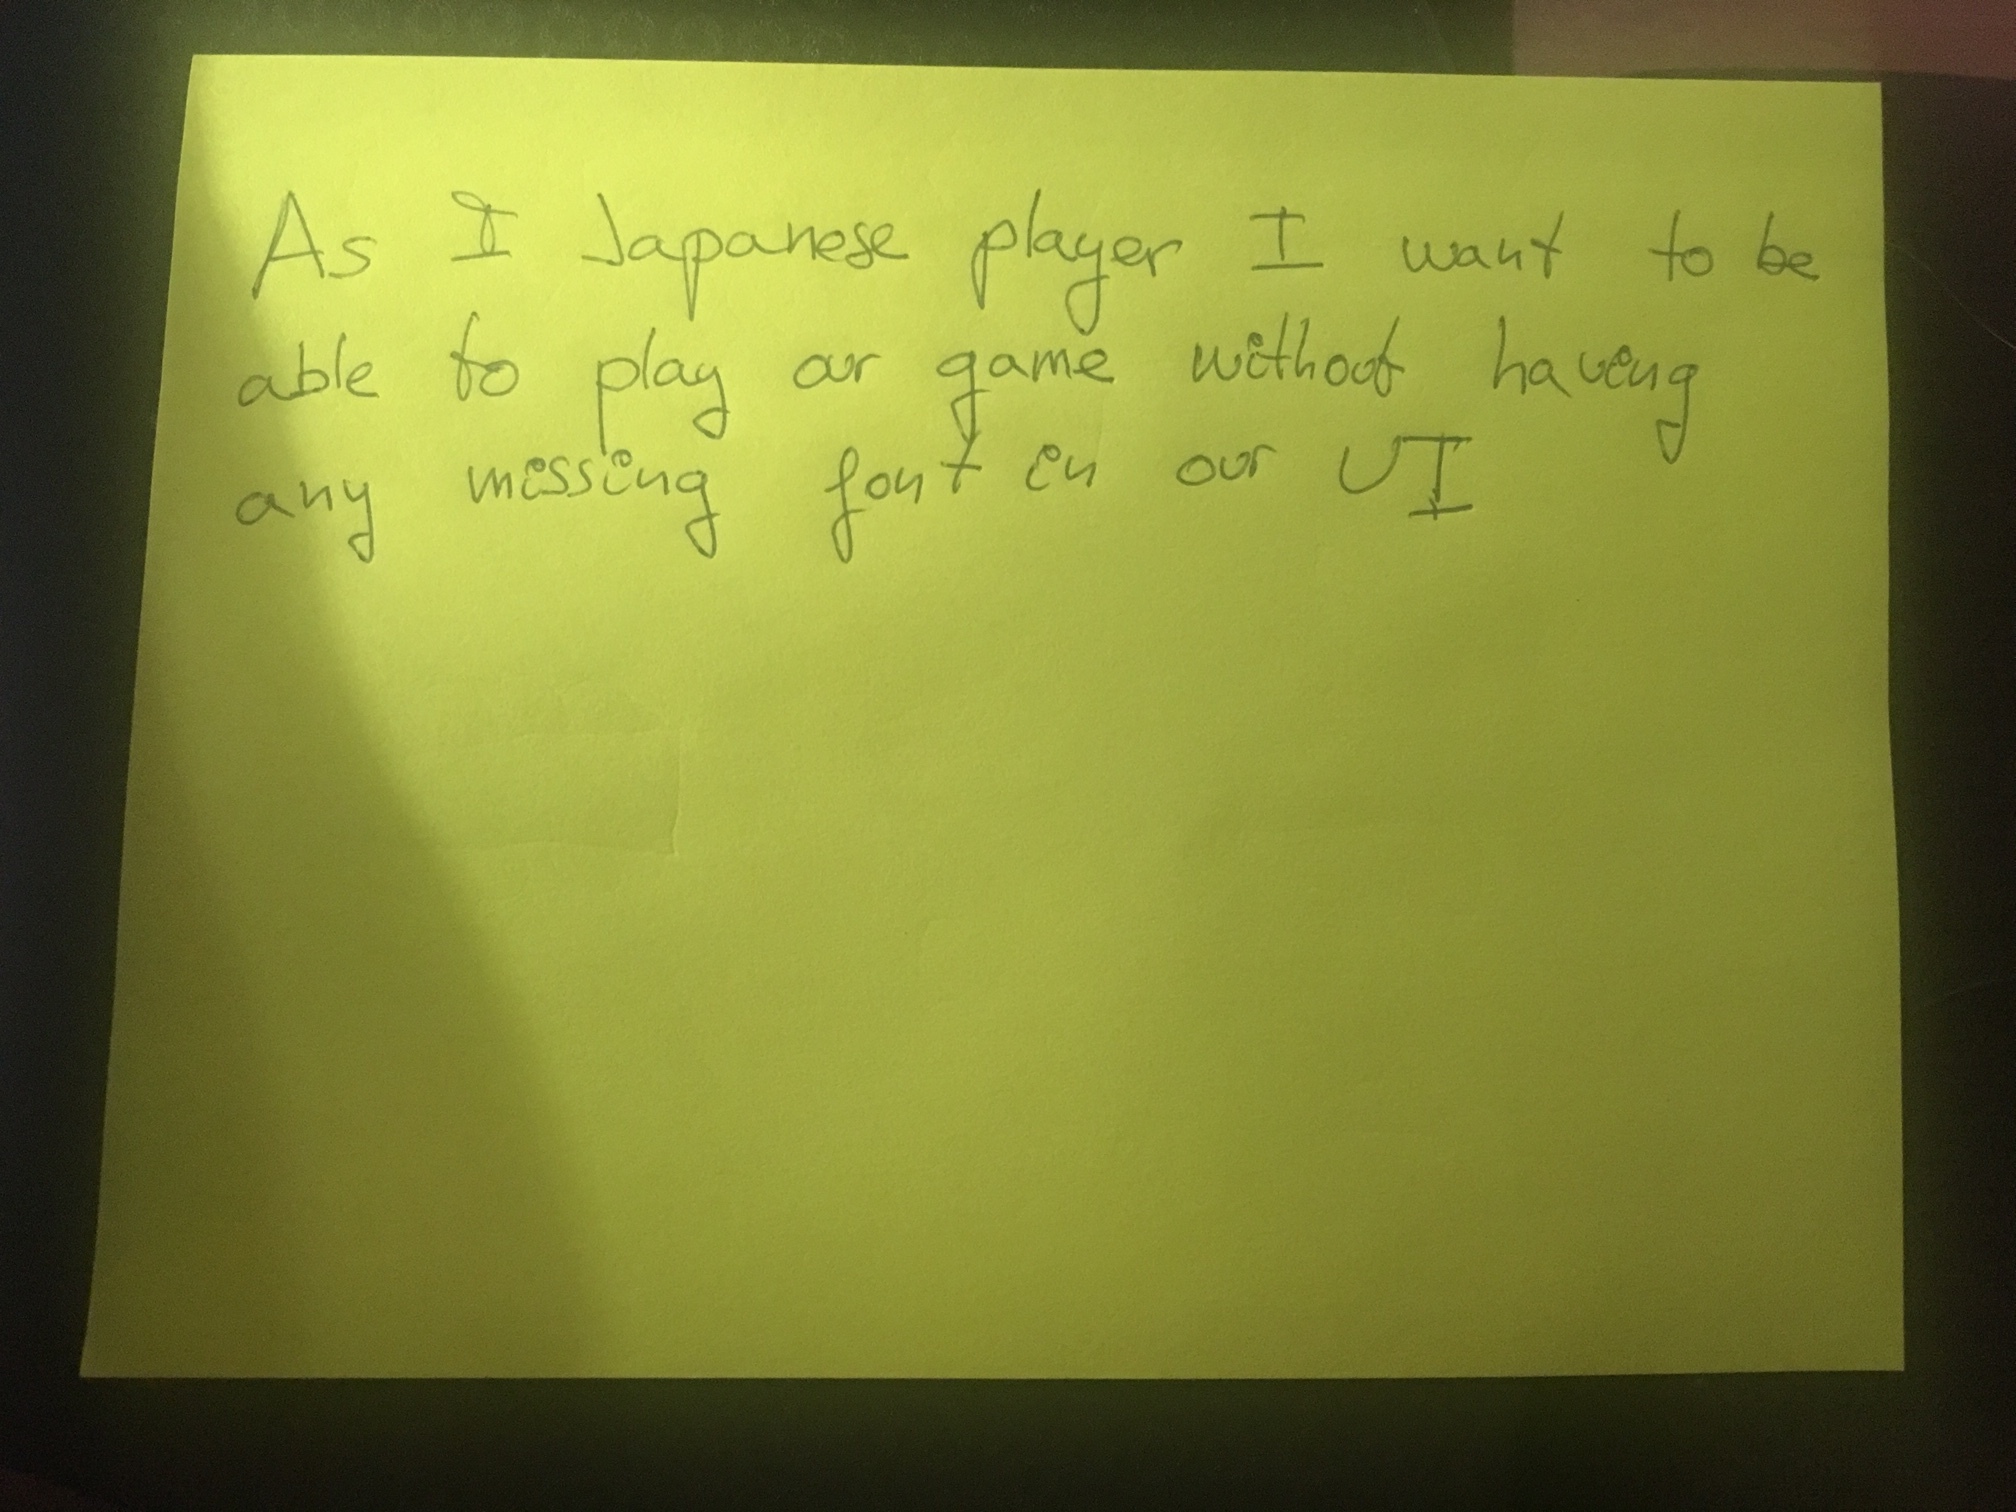 As I Japanese player I want to be
able to play our game without having
any missing font in our UI